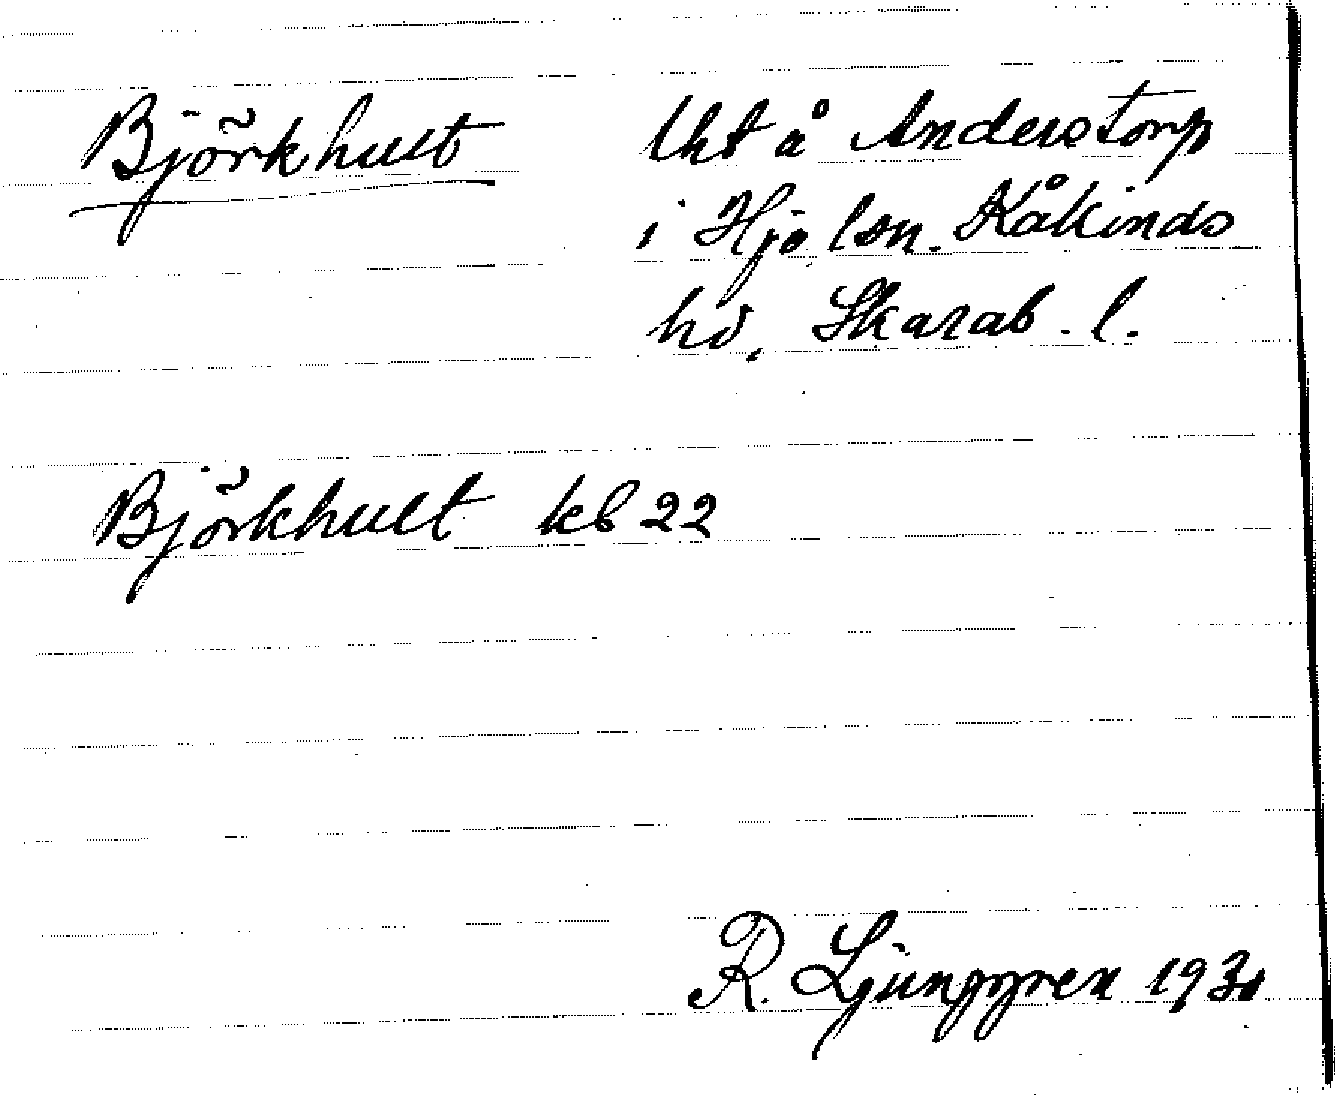 Björkhult
Uht å Anderstorp
i Hjo lsn. Kåkinds
hd, Skarab. l.
Björkhult kb 22
R. Ljunggren